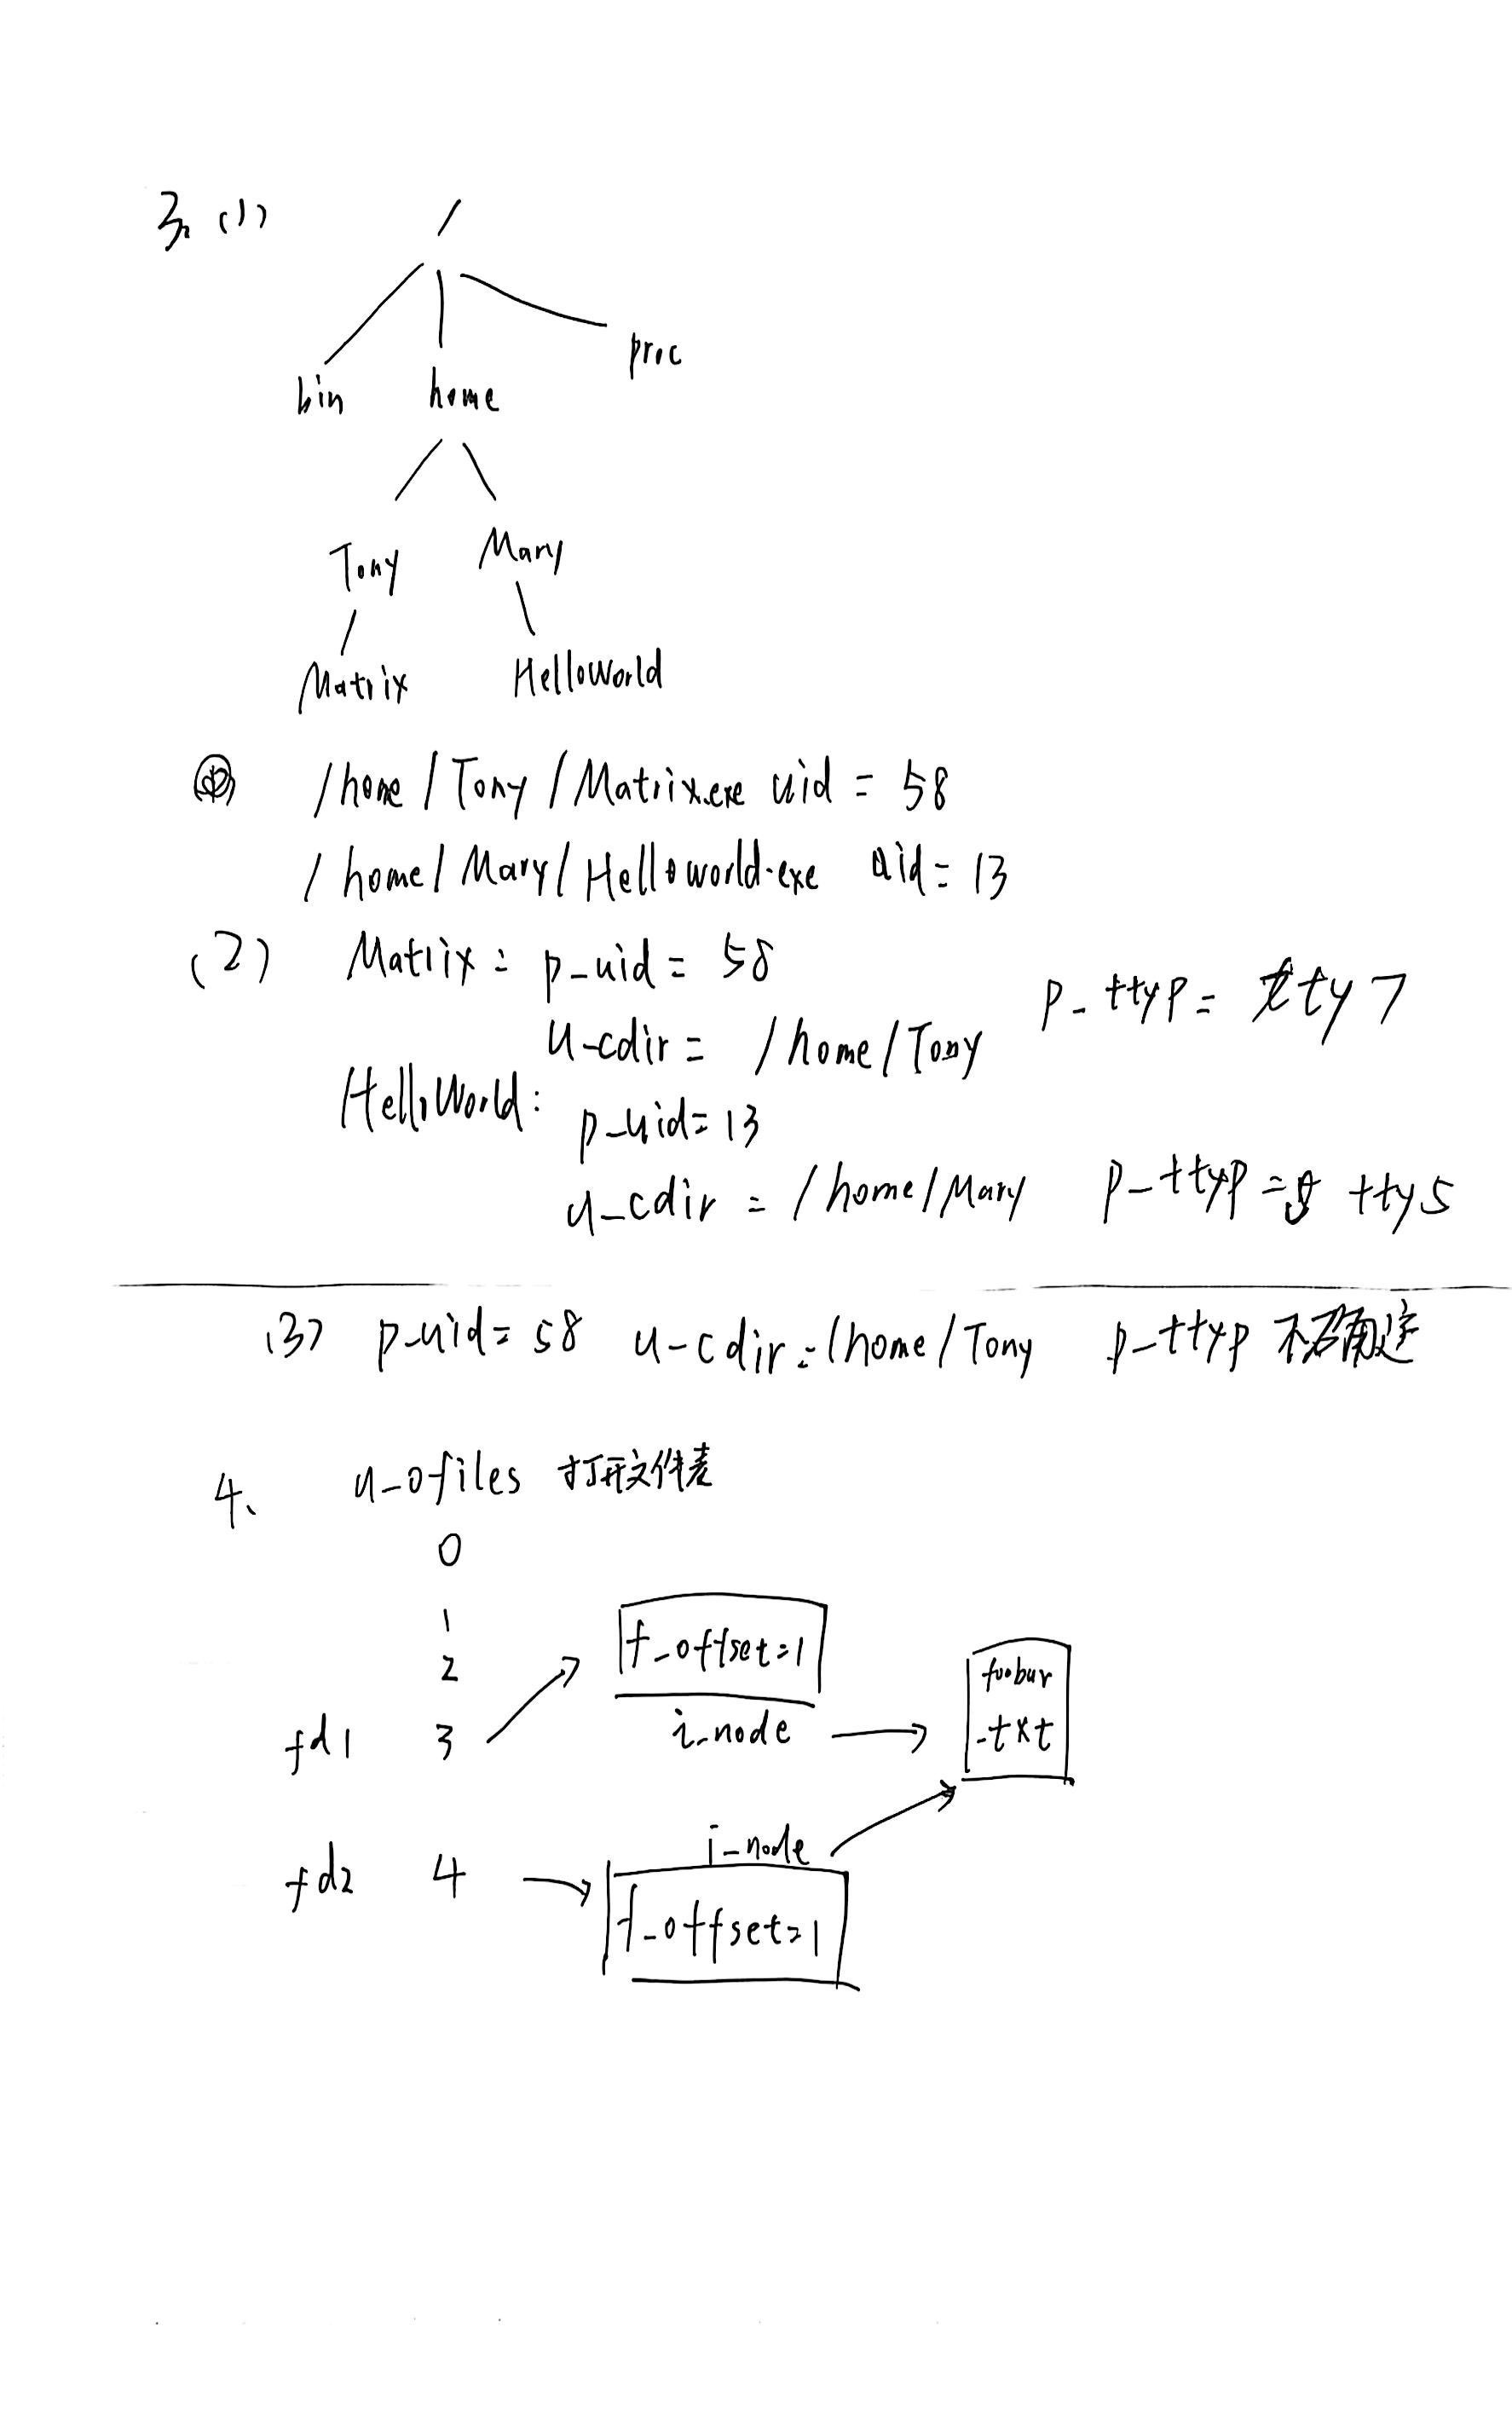 3. (1) /
bin home proc
Tony Mary
Matrix HelloWorld
/home/Tony/Matrix.exe uid = 58
/home/Mary/Helloworld.exe uid = 13
(2) Matrix: p_uid = 58
u-cdir = /home/Tony p_ttyp = tty7
HelloWorld: p_uid=13
u_cdir = /home/Mary p_ttyp = tty5
(3) p_uid = 58 u-cdir=/home/Tony p_ttyp 不确定
4、 u_ofiles 打开文件表
0
1
2
f_offset=1
fd1 3 i_node
foobar
.txt
i_node
fd2 4
f_offset=1